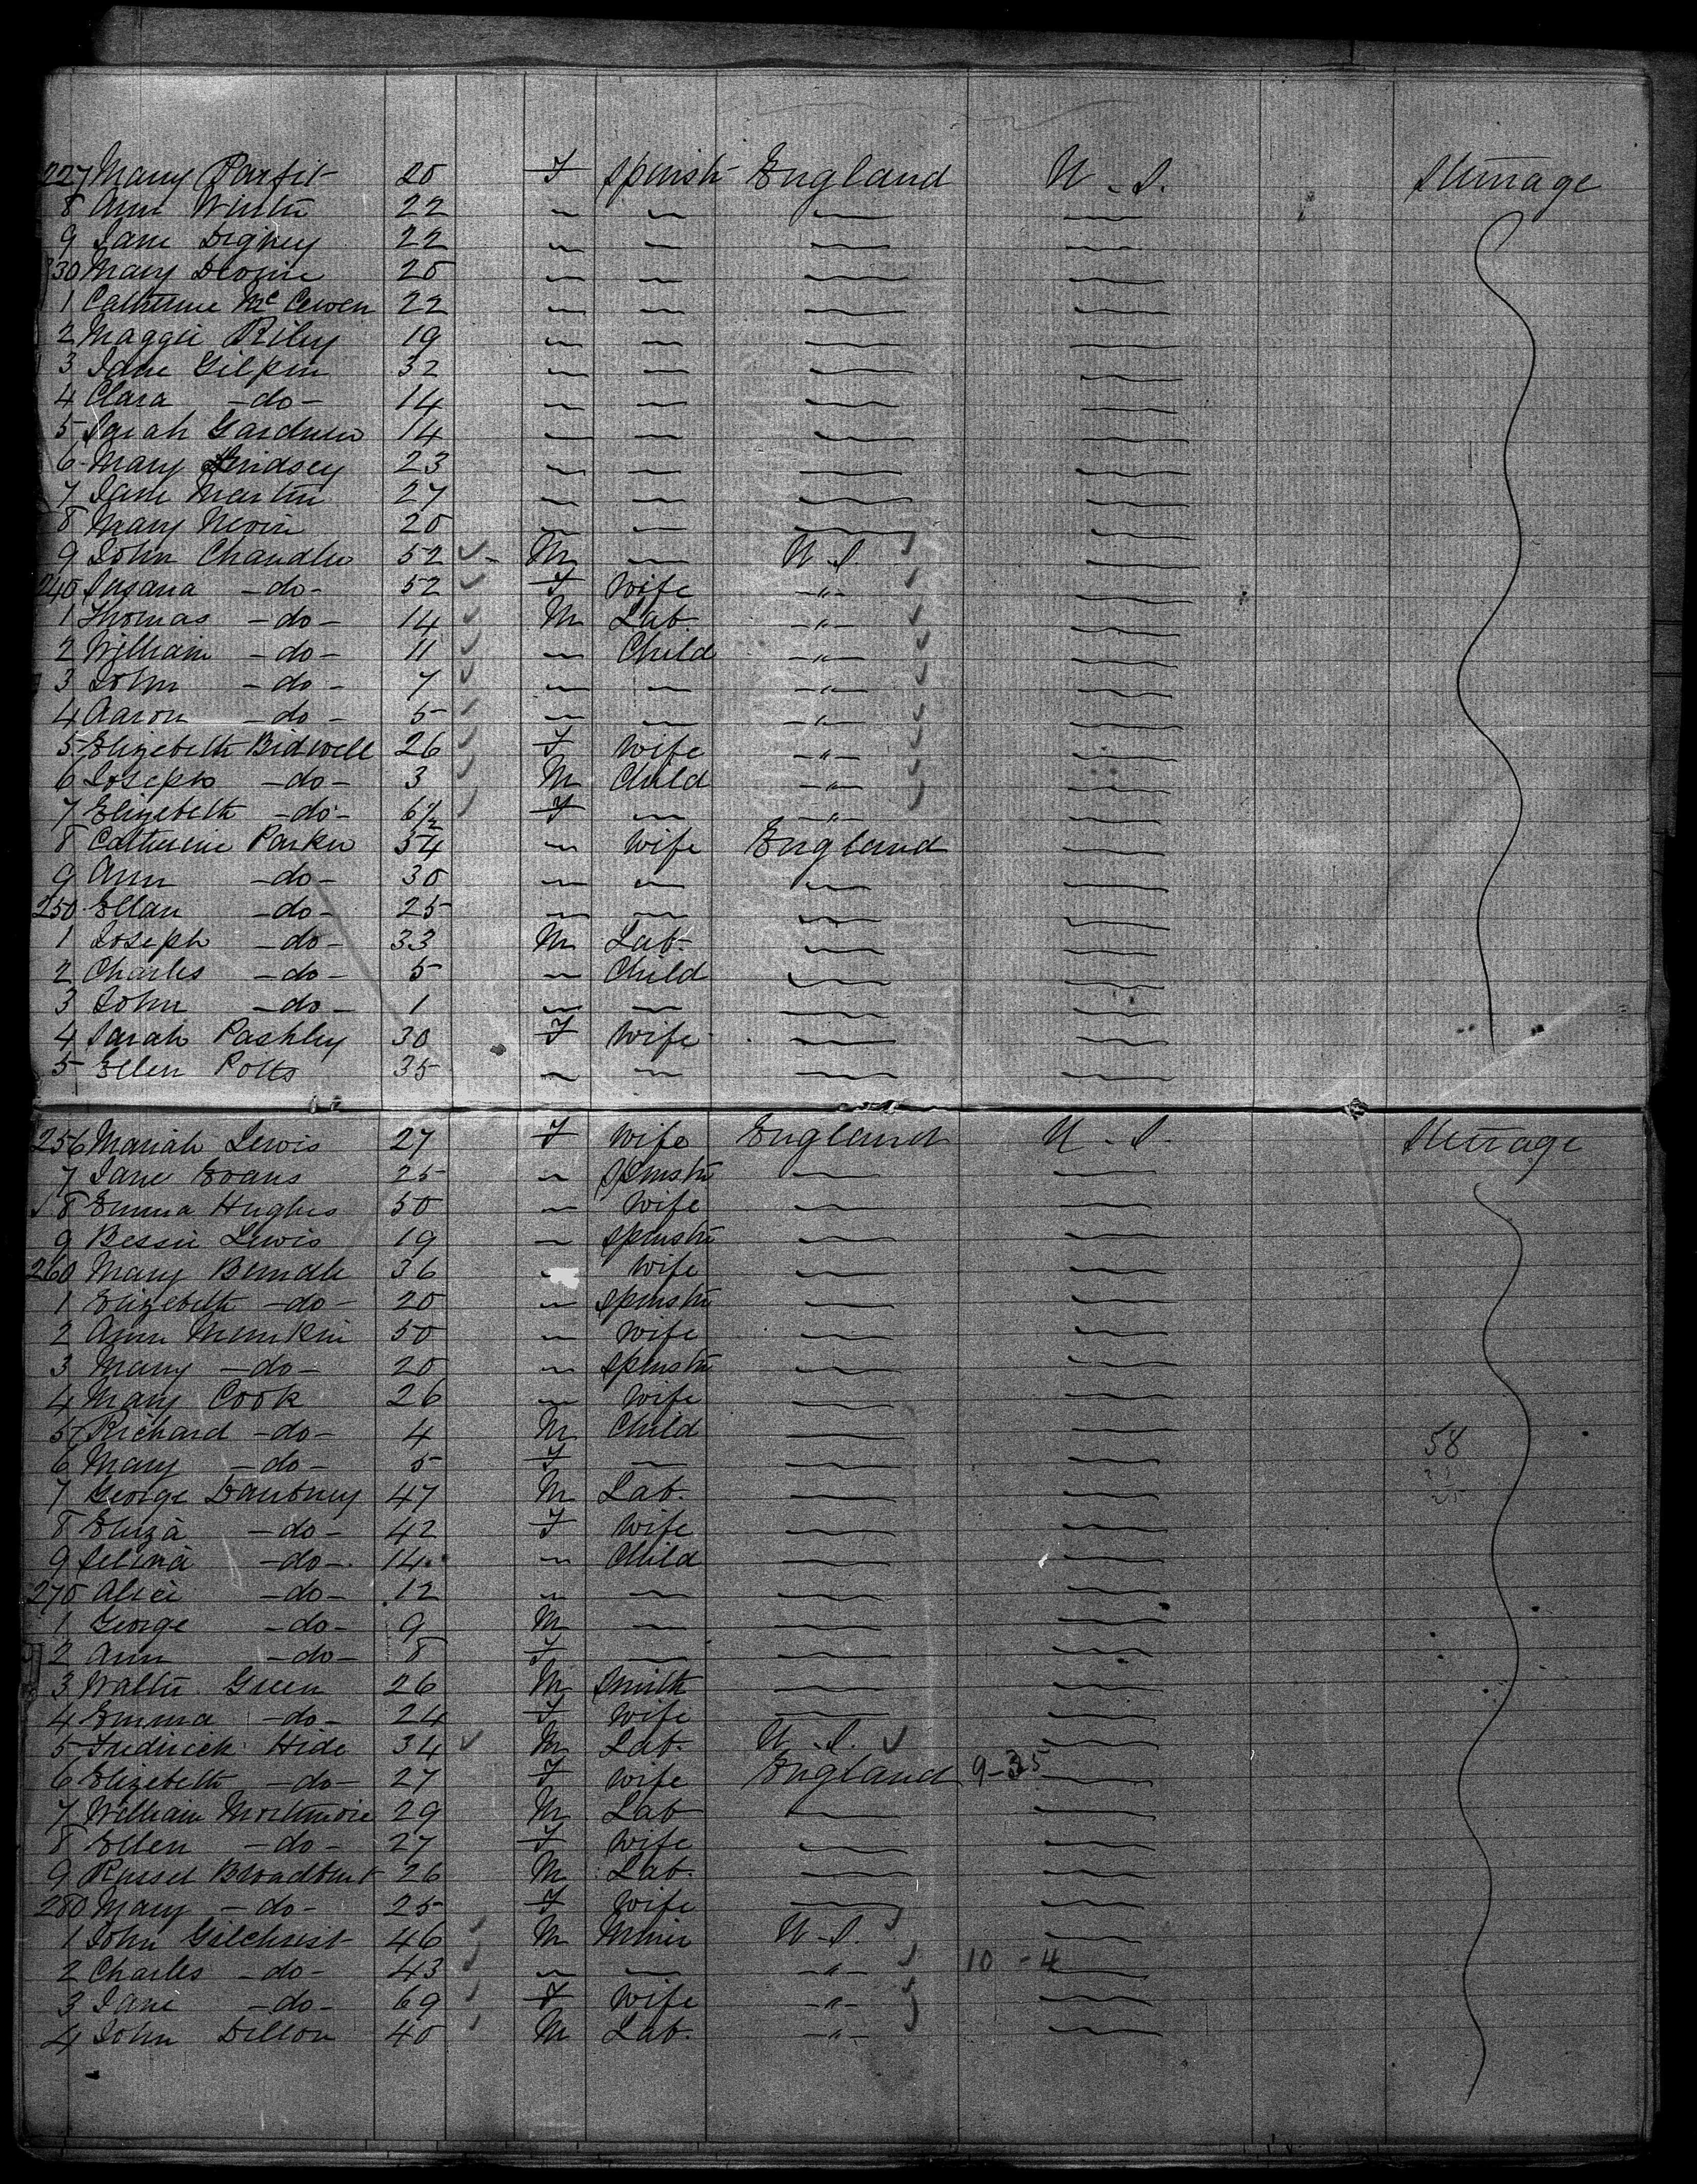 227 Mary Parfit 20 F Spinstr England U.S. Steerage
8 Ann 22 " " " "
9 Jane Digney 22 " " " "
230 Mary Devine 20 " " " "
1 Catherine Mc Cewen 22 " " " "
2 Maggie Riley 19 " " " "
3 Jane Gilpin 32 " " " "
4 Clara -do- 14 " " " "
5 Sarah Gardner 14 " " " "
6 Mary Lindsey 23 " " " "
7 Jane Martin 27 " " " "
8 Mary Nevin 20 " " " "
9 John Chandler 52 M " U.S. "
240 Susana -do- 52 F Wife -"- "
1 Thomas -do- 14 M Lab. -"- "
2 William -do- 11 " Child -"- "
3 John -do- 7 " " -"- "
4 Aaron -do- 5 " " -"- "
5 Elizebeth Bidwell 26 F Wife -"- "
6 Joseph -do- 3 M Child -"- "
7 Elizebeth -do- 6/12 F " -"- "
8 Catherine Parker 54 " Wife England "
9 Ann -do- 30 " " " "
250 Ellan -do- 25 " " " "
1 Joseph -do- 33 M Lab. " "
2 Charles -do- 5 " Child " "
3 John -do- 1 " " " "
4 Sarah Pashley 30 F Wife " "
5 Ellen Potts 35 " " " "
256 Mariah Lewis 27 F Wife England U.S. Steerage
7 Jane Evans 25 " Spinstr " "
8 Emma Hughes 50 " Wife " "
9 Bessie Lewis 19 " Spinstr " "
260 Mary 36 " Wife " "
1 Elizebeth -do- 20 " Spinstr " "
2 Ann 50 " Wife " "
3 Mary -do- 20 " Spinstr " "
4 Mary Cook 26 " Wife " "
5 Richard -do- 4 M Child " " 58
6 Mary -do- 5 F " " "
7 George Daubney 47 M Lab. " "
8 Eliza -do- 42 F Wife " "
9 Selina -do- 14 " Child " "
270 Alice -do- 12 " " " "
1 George -do- 9 M " " "
2 Ann -do- 8 F " " "
3 Walter Green 26 M Smith " "
4 Emma -do- 24 F Wife " "
5 Fredrick Hide 34 M Lab. U.S. "
6 Elizebeth -do- 27 F Wife England 9-35 "
7 William Mortimore 29 M Lab " "
8 Ellen -do- 27 F Wife " "
9 Russel Broadbent 26 M Lab. " "
280 Mary -do- 25 F Wife " "
1 John Gilchrist 46 M Miner U.S. "
2 Charles -do- 43 " " -"- 10-4 "
3 Jane -do- 69 F Wife -"- "
4 John Dillon 40 M Lab. -"- "